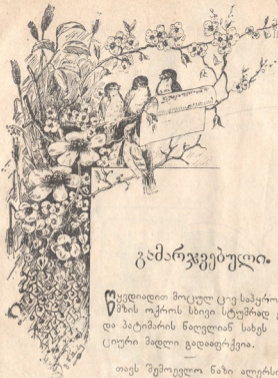 გამარჯვებული.
ყვედიადით მოცულ ცივ საპყრო
მზის ოქროს სხივი სტუმრად
და პატიმარის ნაღვლიან სახეს
ციური მადლი გადააფრქვია.
თავს შემოევლო ნაზი ალერსი